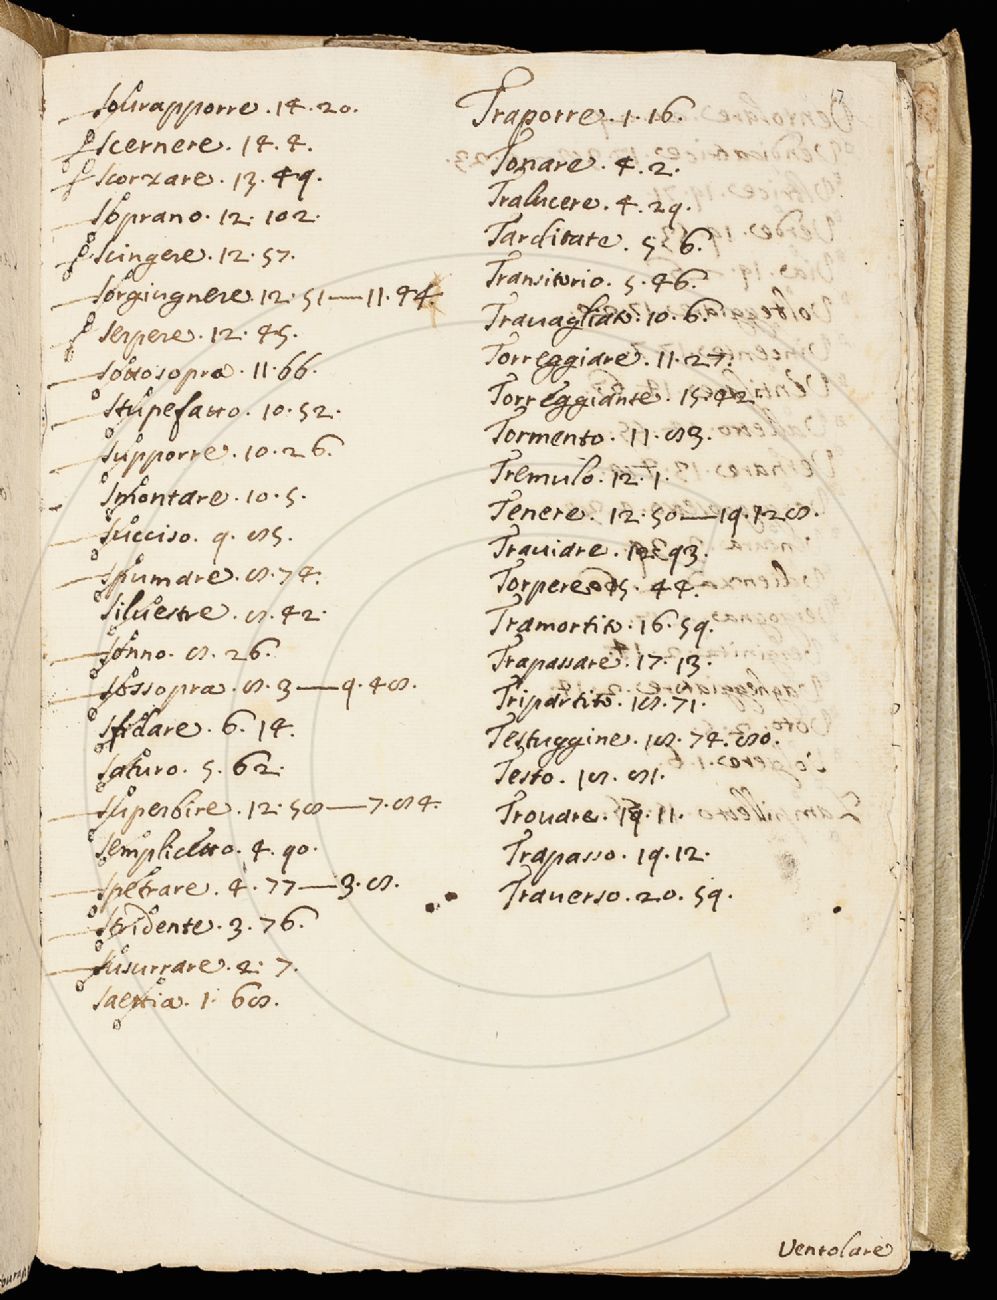 Sourapporre. 14. 20.
Scernere. 14. 4.
Scorzare. 13. 49.
Soprano. 12. 102.
Scingere. 12. 57.
Sorgiugnere 12. 51—11. 44.
Serpere. 12. 45.
Sottosopra. 11. 66.
Stupefatto. 10. 52.
Supporre. 10. 26.
Smontare. 10. 5.
Succiso. 9. 85.
Spumare. 8. 74.
Siluestre. 8. 42.
Sonno. 8. 26.
Sossopra. 8. 3—9. 48.
Sfidare. 6. 14.
Saturo. 5. 62.
Superbire. 12. 58—7. 84.
Semplicetto. 4. 90.
Spetrare. 4. 77—3. 8.
Stridente. 3. 76.
Susurrare. 2. 7.
Saettia. 1. 68.
Traporre. 1. 16.
Tonare. 4. 2.
Tralucere. 4. 29.
Tarditate. 5. 6.
Transitorio. 5. 46.
Trauagliato. 10. 6.
Torreggiare. 11. 27.
Torreggiante. 15. 42.
Tormento. 11. 83.
Tremulo. 12. 1.
Tenere. 12. 50—19. 128.
Trauiare. 93.
Torpere. 44.
Tramortito. 16. 59.
Trapassare. 17. 13.
Tripartito. 18. 71.
Testuggine. 18. 74. 80.
Testo. 18. 81.
Trouare. 19. 11.
Trapasso. 19. 12.
Trauerso. 20. 59.
Ventolare